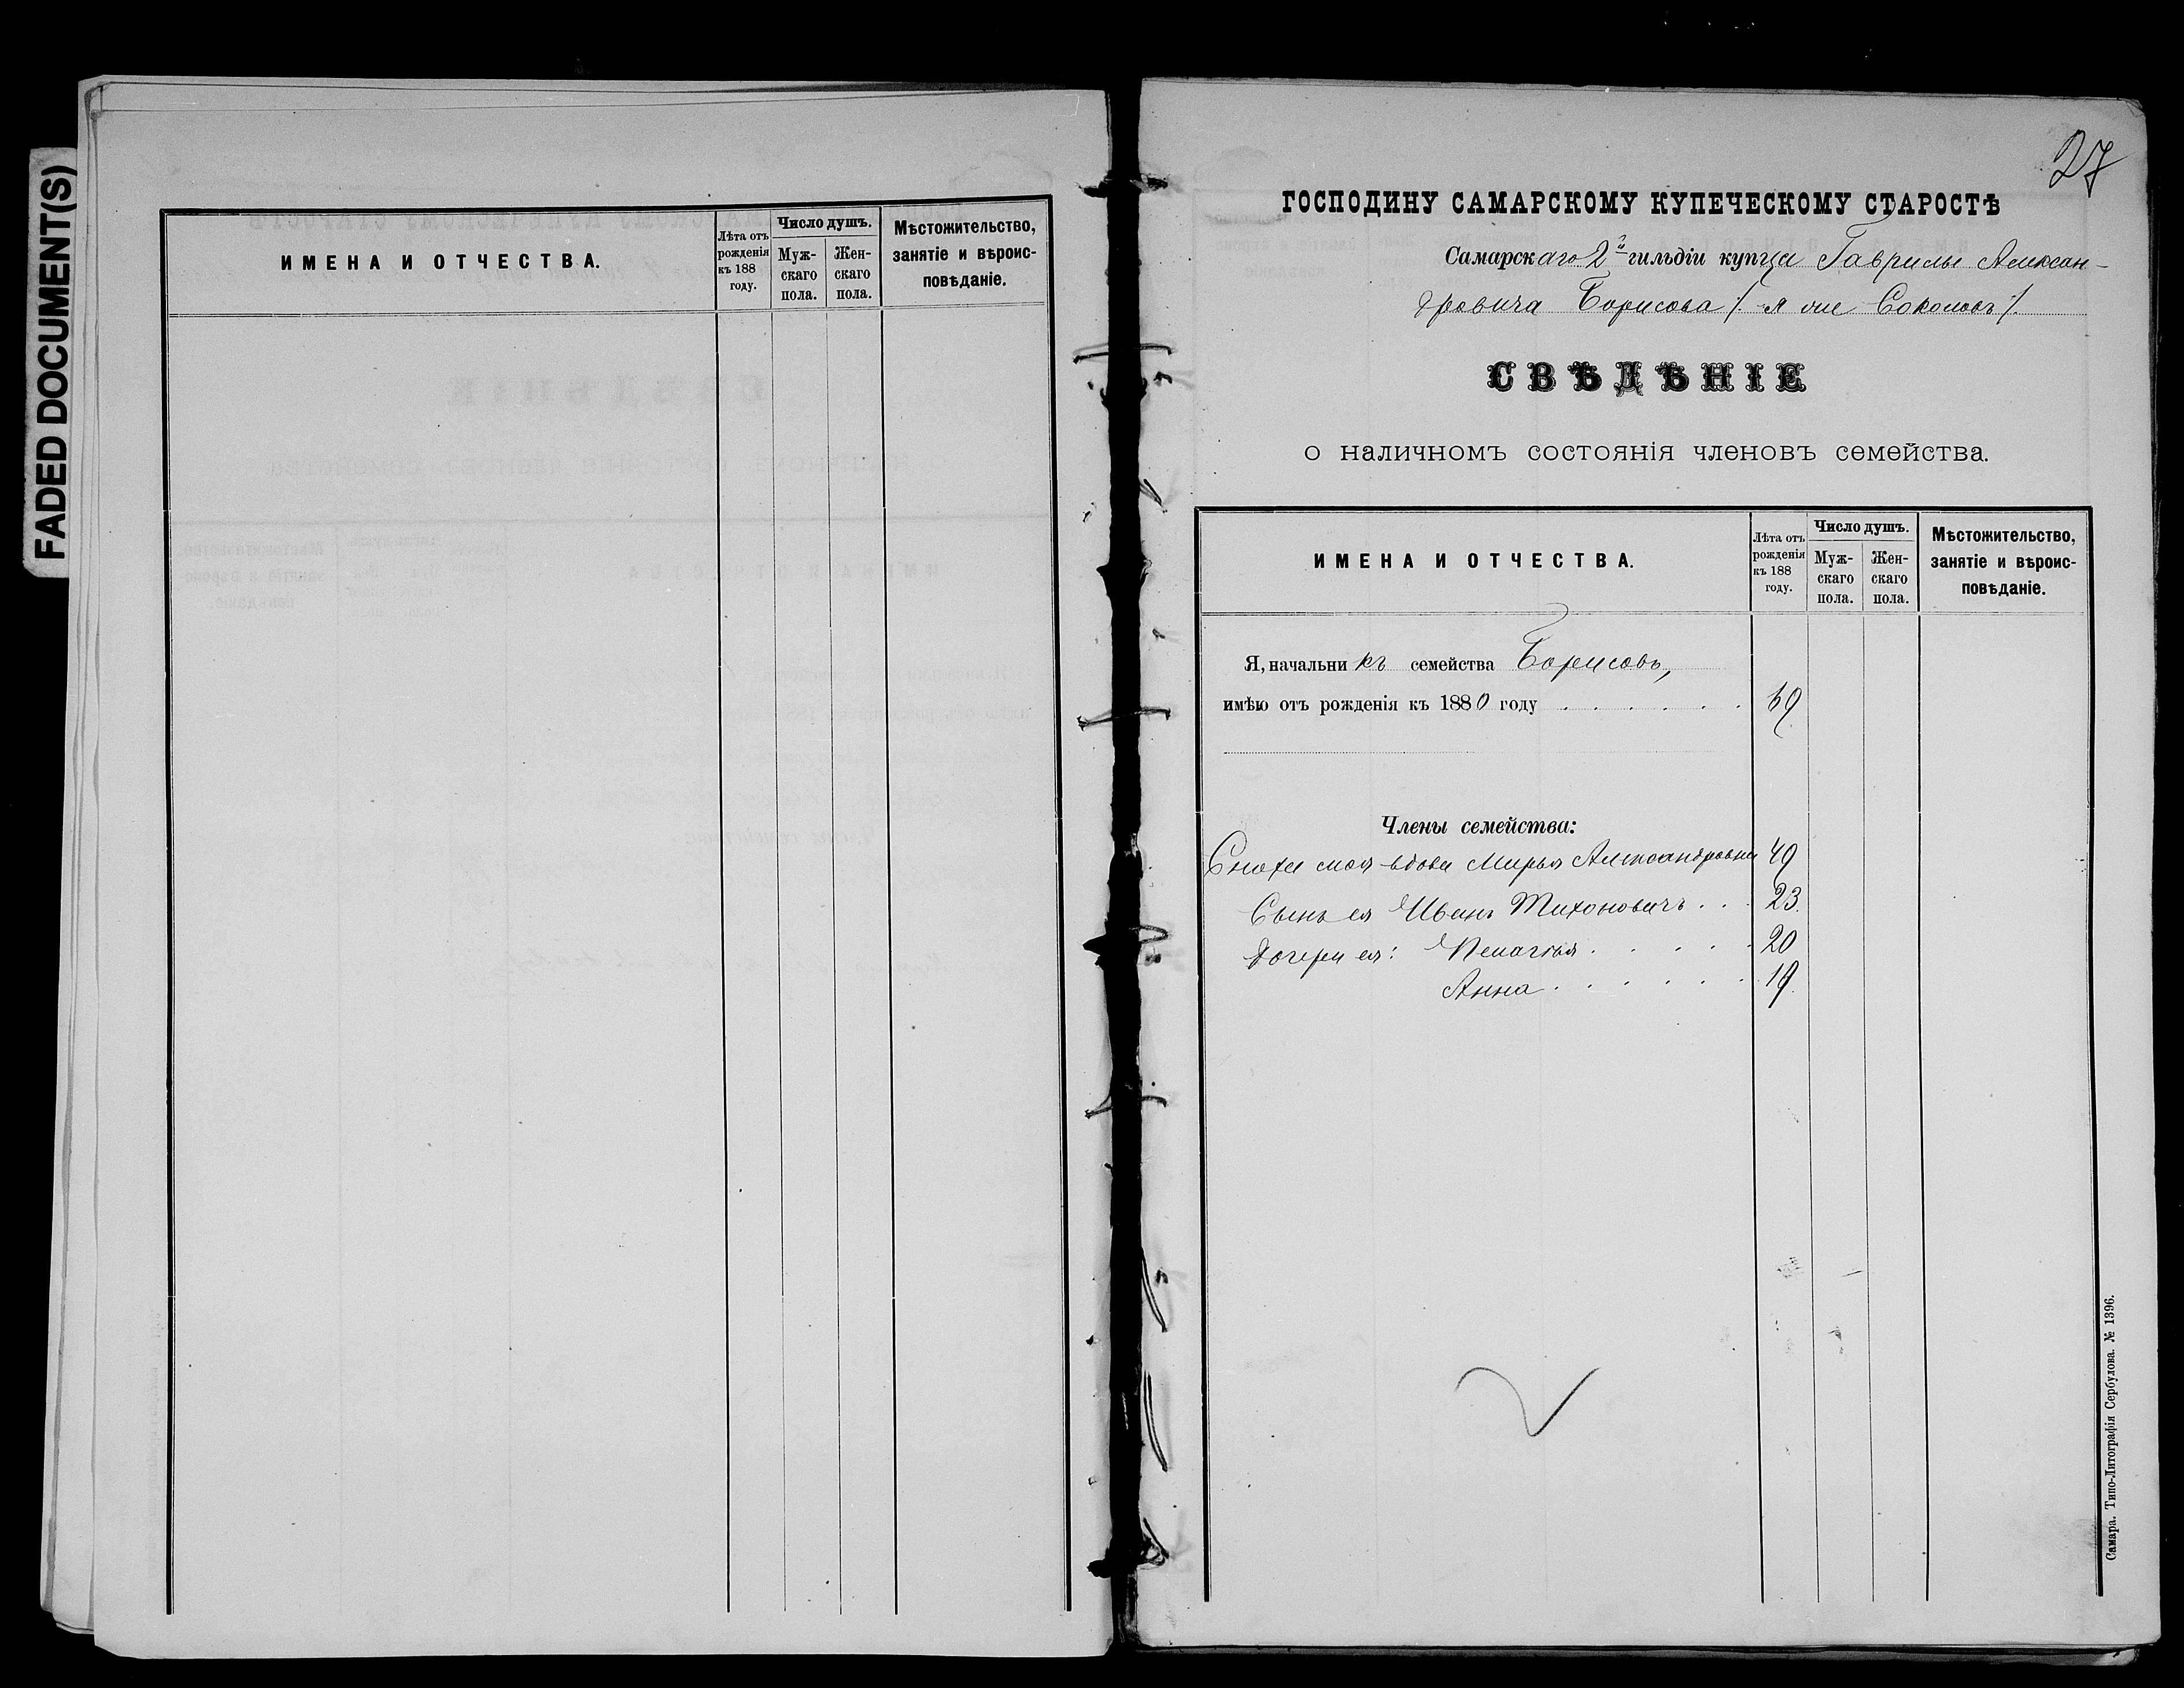 FADED DOCUMENT(S)
ИМЕНА И ОТЧЕСТВА.
Лѣта отъ рожденія къ 188 году.
Число душъ.
Мужскаго пола.
Женскаго пола.
Мѣстожительство, занятіе и вѣроисповѣданіе.
27
ГОСПОДИНУ САМАРСКОМУ КУПЕЧЕСКОМУ СТАРОСТѢ
Самарскаго 2й гильдіи купца Гаврилы Алексан-
дровича Борисова /: онъ же Соколовъ :/.
СВѢДѢНІЕ
О НАЛИЧНОМЪ СОСТОЯНІЯ ЧЛЕНОВЪ СЕМЕЙСТВА.
ИМЕНА И ОТЧЕСТВА.
Лѣта отъ рожденія къ 188 году.
Число душъ.
Мужскаго пола.
Женскаго пола.
Мѣстожительство, занятіе и вѣроисповѣданіе.
Я, начальникъ семейства Борисовъ,
имѣю отъ рожденія къ 1880 году . . . . . .
Члены семейства:
Сноха моя вдова Марья Александровна 49
Сынъ ея Иванъ Тихоновичъ . . . 23.
Дочери ея: . . . . . 20
Анна . . . . . . 19.
Самара. Типо-Литографія Сербулова. № 1396.